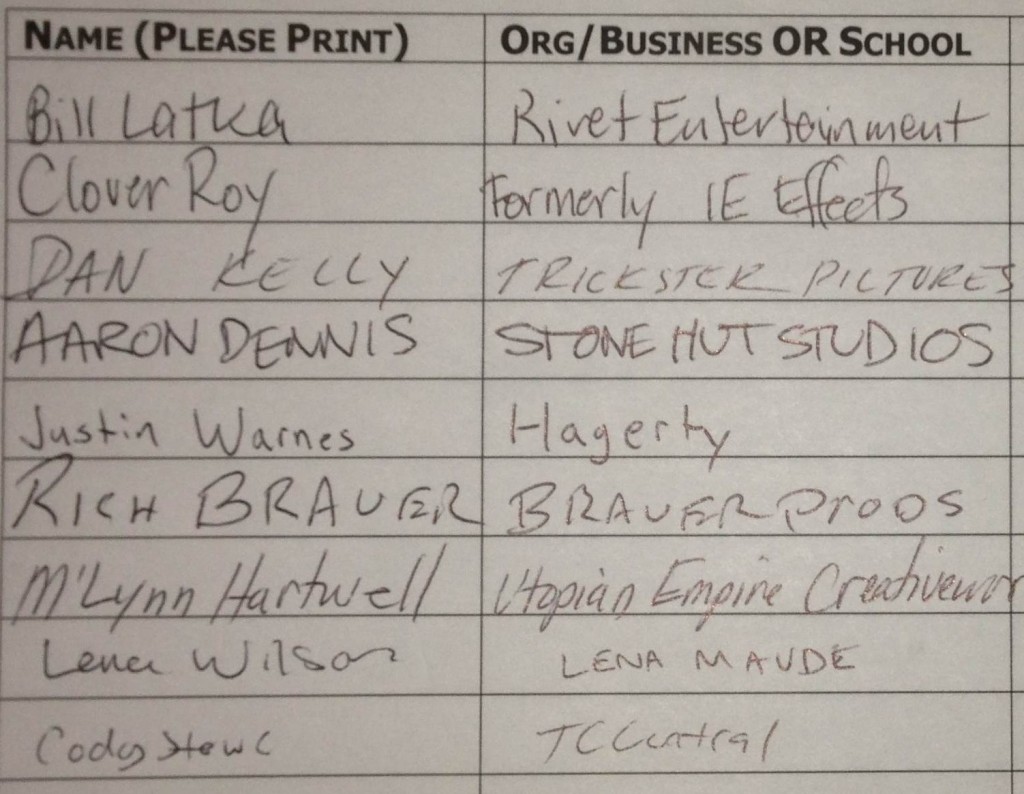 NAME (PLEASE PRINT) ORG/BUSINESS OR SCHOOL
Bill Latka Rivet Entertainment
Clover Roy Formerly IE Effects
DAN KELLY TRICKSTER PICTURES
AARON DENNIS STONE HUT STUDIOS
Justin Warnes Hagerty
RICH BRAUER BRAUER PRODS
M'Lynn Hartwell Utopian Empire Creativewor
Lena Wilson LENA MAUDE
Cody TC Central